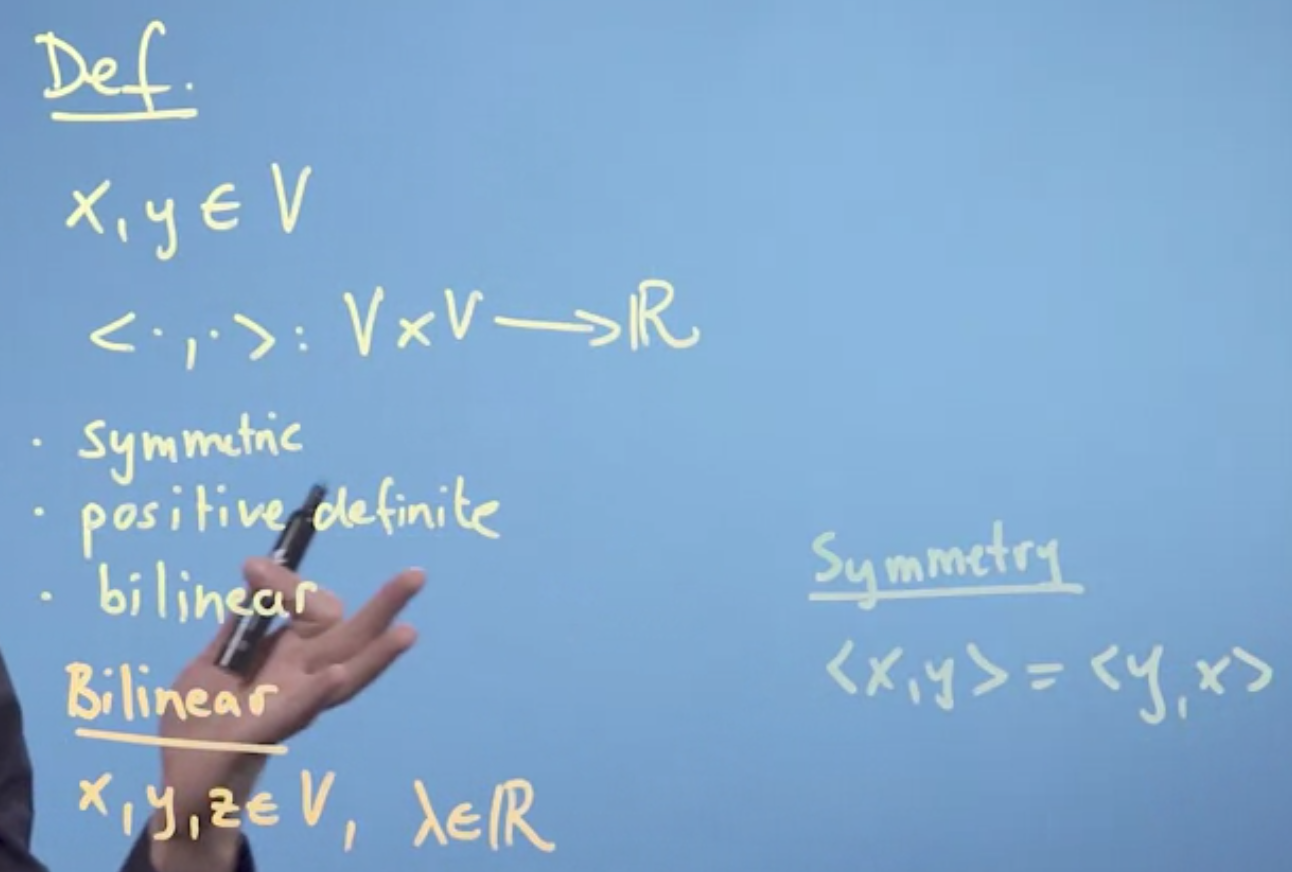 Def.
x, y ∈ V
<·,·>: V × V ⟶ ℝ
· symmetric
· positive definite
· bilinear
Bilinear
x, y, z ∈ V, λ ∈ ℝ
Symmetry
<x, y> = <y, x>